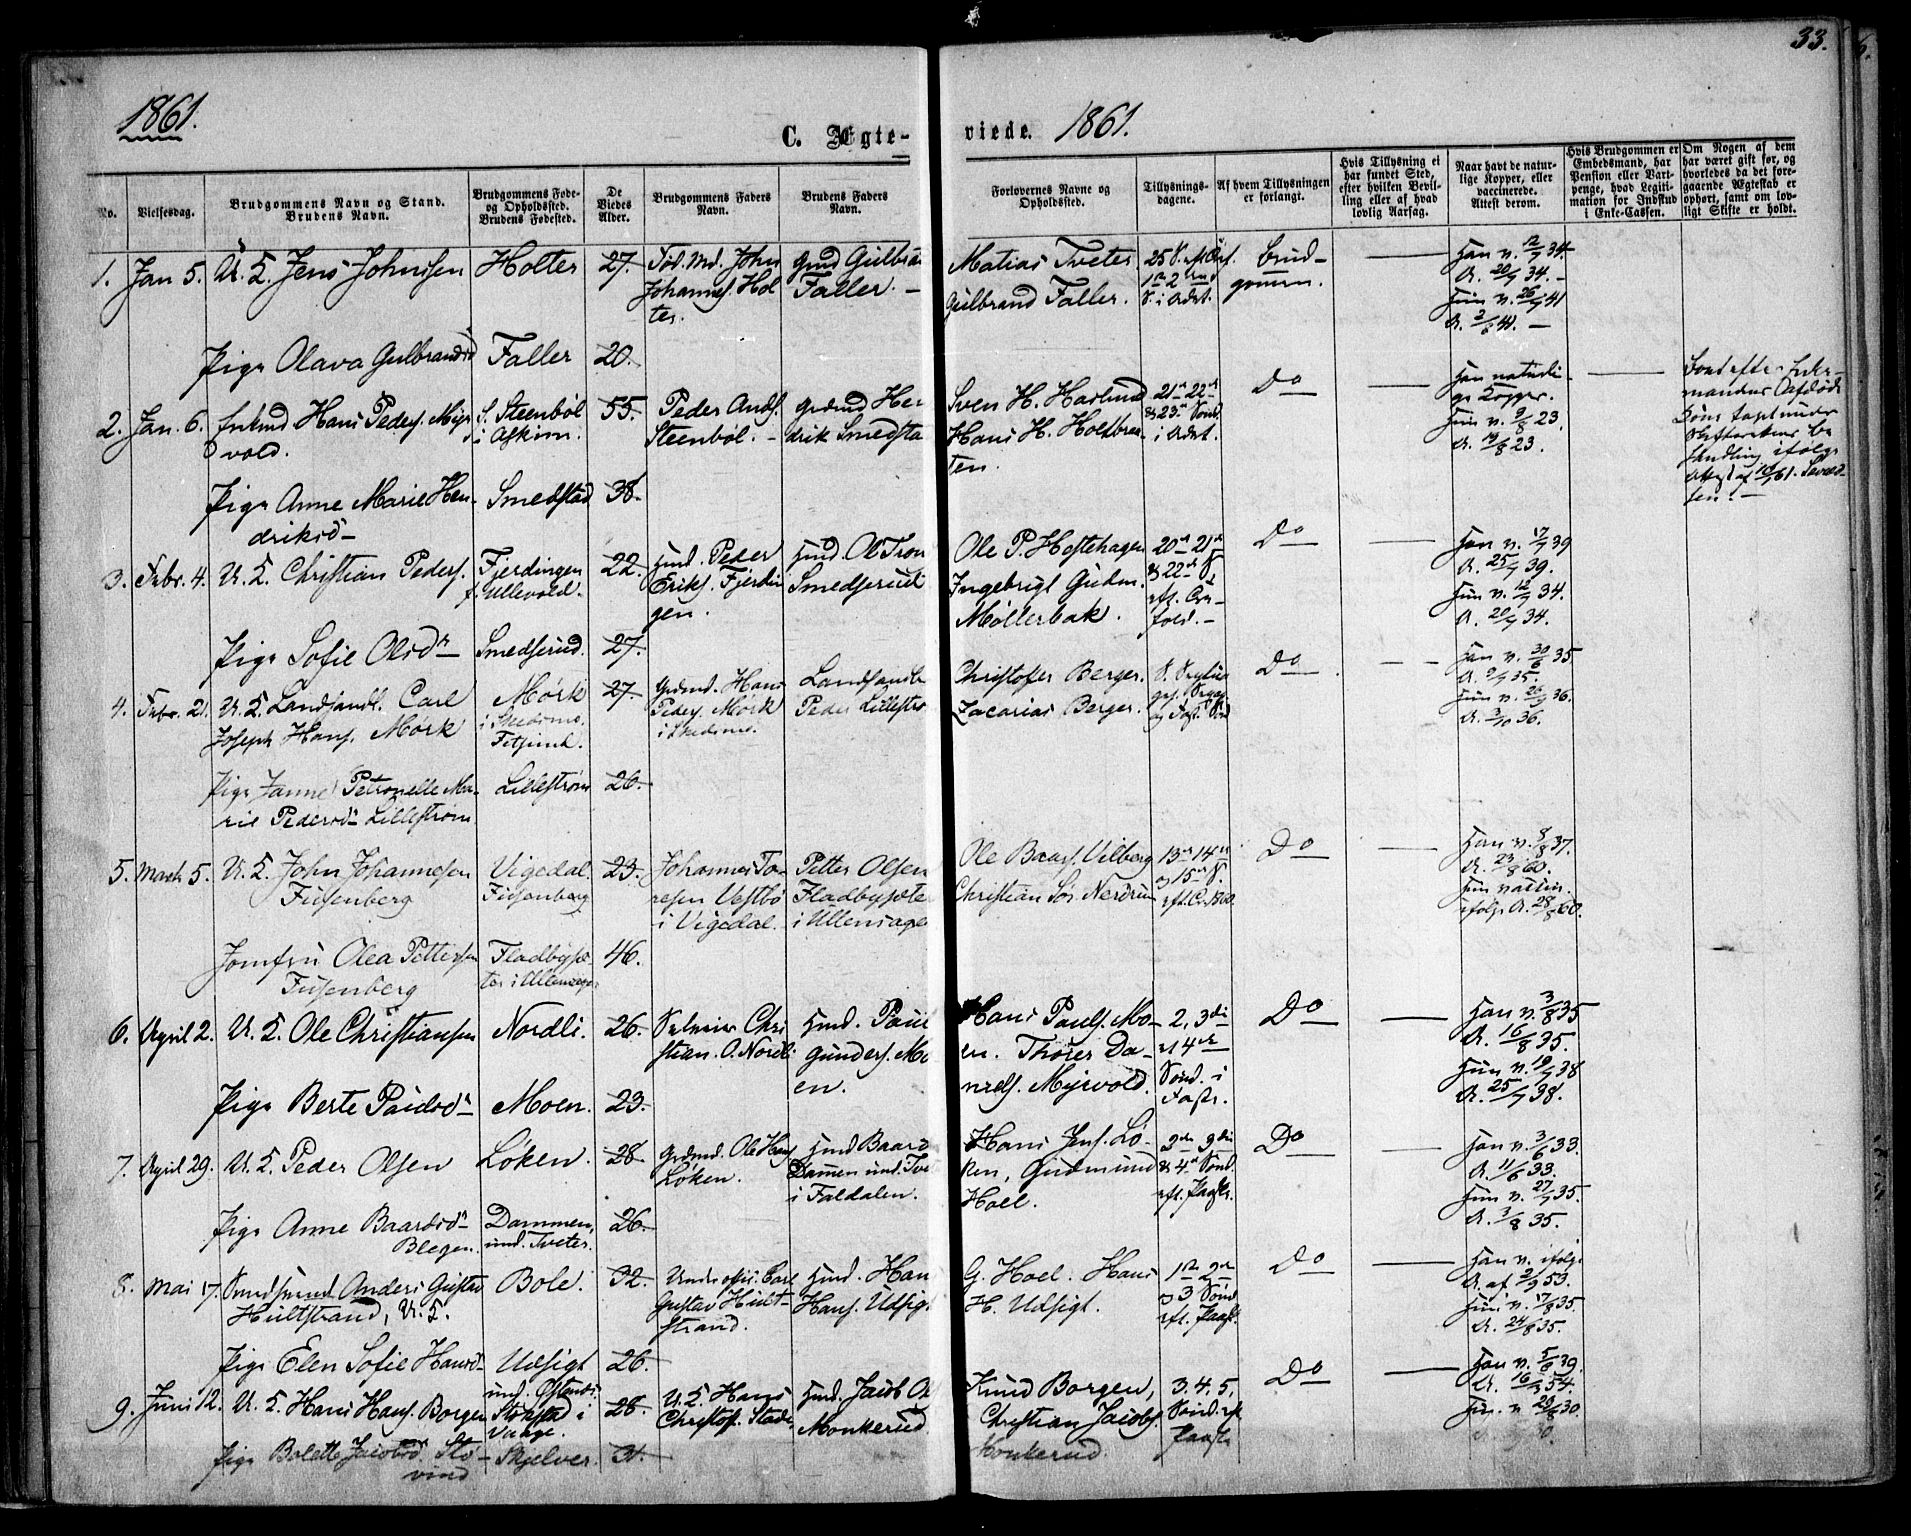 33.
1861.
C. Ægte-
viede. 1861.
No.
Vielsesdag.
Brudgommens Navn og Stand.
Brudens Navn.
Brudgommens Føde-
og Opholdssted.
Brudens Fødested.
De
Viedes
Alder.
Brudgommens Faders
Navn.
Brudens Faders
Navn.
Forlovernes Navne og
Opholdssted.
Tillysnings-
dagene.
Af hvem Tillysningen
er forlangt.
Hvis Tillysning ei
har fundet Sted,
efter hvilken Bevil-
ling eller af hvad
lovlig Aarsag.
Naar havt de natur-
lige Kopper, eller
vaccinerede.
Attest derom.
Hvis Brudgommen er
Embedsmand, har
Pension eller Vart-
penge, hvad Legiti-
mation for Indskud
i Enke-Cassen.
Om Nogen af dem
har været gift før, og
hvorledes da det fore-
gaaende Ægteskab er
ophørt, samt om lov-
ligt Skifte er holdt.
1. Jan 5. U. K. Jens Johnsen
Holter
27.
John
Johannes. Hol
ter.
Gmd Gulbra
Faller. —
Matias Tveter
Gulbrand Faller.
1ste 2den
S. i Advt.
Brud-
gommen.
Han v. 12/7 34.
A. 20/7 34. —
Hun v. 26/7 41
A. 3/8 41. —
Pige Olava Gulbrandsd
Faller
20.
2. Jan. 6. Enkmd Hans Peders. Myr
vold.
S. Steenbøl
i Askim.
55.
Peder Ands.
Steenbøl. -
Grdmd Hen
drik Smedsta
Sven H. Haslund
Hans H. Holtbraa-
ten.
21de 22de
& 23de Sønd
i Advt.
Do
Han naturli-
ge Kopper.
Hun v. 9/8 23.
A. 19/8 23.
Pige Anne Marie Hen-
driksd—
Smedstad
38.
3. Febr. 4. U. K. Christian Peders.
Fjerdingen
f. Ullevold.
22.
Husmd. Peder
Eriks. Fjerdin
gen.
Husmd. Ol Tron
Smedserud
Ole P. Hoftehagen
Ingebrigt Gudm.
Møllerbak.
20de 21de
& 22de S
eft.
Do
Han v. 17/7 39
A. 25/7 39.
Hun v. 12/7 34.
A. 20/7 34.
Pige Sofie Olsdr
Smedserud.
27.
4. Febr. 21. U. K. Landhandl. Carl
Joseph Hans. Mørk
Mørk
i Skedsmo.
27
Grdmd. Hans
Peders. Mørk
i Skedsmo.
Landhandle
Peder Lillestrø
Christofer Berger.
Zacarias Berger.
Do
Han v. 30/6 35
A. 9/7 35.
Hun v. 26/9 36.
A. 3/10 36.
Pige Janne Petronelle Ma-
rie Pedersdr Lillestrøm
Lillestrøm
26.
5. Marts 5. U. K. John Johannesen
Fusenberg
Vigedal.
Fusenberg
23.
Johannes To-
resen Vestbø
i Vigedal.
Petter Olsen
Fladbysæte
i Ullensager
Ole Baars. Vilberg
Christian Sør. Nerdrum
13de 14de
og 15de S.
Do
Han v. 8/8 37.
A. 23/8 60.
Hun vaccin.
ifølge A. 28/8 60.
Jomfru Olea Pettersen
Fusenberg
Fladbysæ-
ter i Ullensager
46.
6. April 2. U. K. Ole Christiansen
Nordli.
26.
Selveier Chri
stian. O. Nordli
Husmd. Paul
Gunders. Mo
en.
Hans Pauls. Mo-
en. Thorer Da-
niels. Myrvold.
2, 3die
og 4de
Sønd. i
Faste.
Do
Han v. 3/8 35
A. 16/8 35.
Hun v. 19/7 38
A. 25/7 38.
Pige Berte Paulsdr
Moen.
23.
7. April 29. U. K. Peder Olsen
Løken.
28
Grdmd. Ole Hans.
Løken.
Husmd Baard
Dammen und. Tve
i Faldalen.
Hans Jens. Lø-
ken, Gudmund
Hoel.
2de 3die
& 4de Sønd.
eft. Paaske.
Do
Han v. 3/6 33.
A. 11/6 33.
Hun v. 27/7 35.
A. 3/8 35.
Pige Anne Baardsdr
Blegen.
Dammen,
und. Tveter.
26.
8. Mai 17. Anders Gustav
Hultstrand, U. K.
Bole.
32.
Underoffic. Carl
Gustav Hult-
strand.
Husmd. Han
Hans. Udsigt
G. Hoel. Hans
H. Udsigt.
1ste 2den
og 3 Sønd
eft. Paaske.
Do
Han v. ifølge
A. af 2/9 53.
Hun v. 17/8 35.
A. 24/8 35.
Pige Elen Sofie Hansd—
Udsigt
26.
9. Juni 12. U. K. Hans Hans. Borgen
Stokstad i
Vaage.
28.
U. K. Hans
Christof. Stade
Husmd. Jacob Ol
Monkerud
Knud Borgen,
Christian Jacobs.
Monkerud
3. 4. 5,
Sønd. eft
Paaske
Do
Han v. 5/6 39.
A. 16/7 54.
Hun. v 20/8 30.
Pige Bolette Jacobsdr. Stø-
vind
Skjelver.
31.